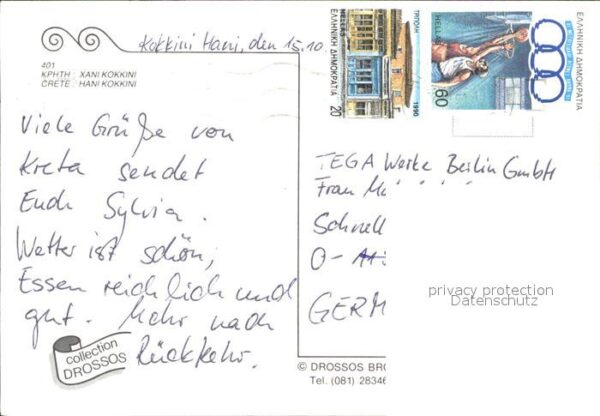 Kokkini Hani, den 15.10
401
ΚΡΗΤΗ : ΧΑΝΙ ΚΟΚΚΙΝΙ
CRETE : HANI KOKKINI
Viele Grüße von
Kreta sendet
Euch Sylvia.
Wetter ist schön,
Essen reichlich und
gut. Mehr nach
Rückkehr.
collection
DROSSOS
HELLAS
ΕΛΛΗΝΙΚΗ ΔΗΜΟΚΡΑΤΙΑ
20
ΤΡΙΠΟΛΗ
1990
HELLAS
60
ΕΛΛΗΝΙΚΗ ΔΗΜΟΚΡΑΤΙΑ
TEGA Werke Berlin GmbH
Frau
Schnell
O-
GERM
privacy protection
Datenschutz
© DROSSOS BRO
Tel. (081) 28346